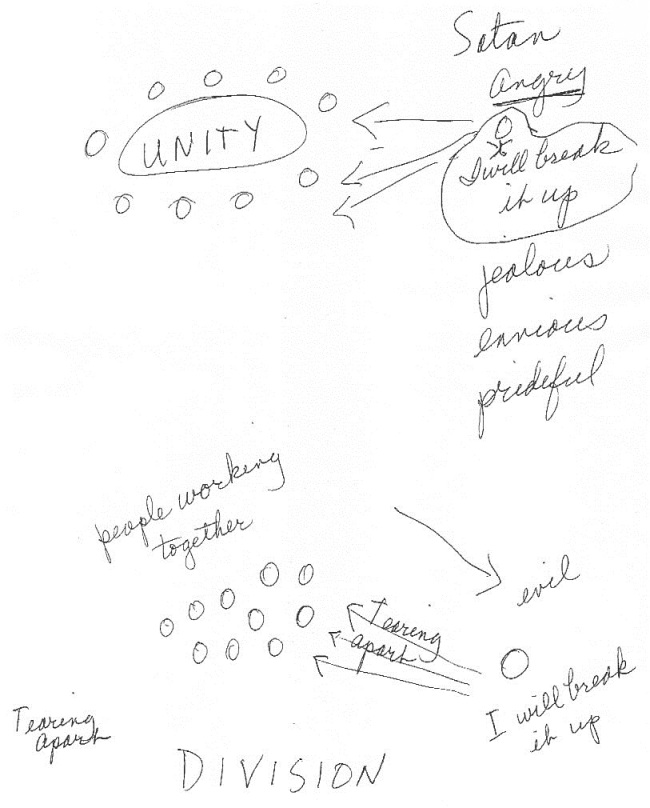 Satan
Angry
UNITY
I will break
it up
jealous
envious
prideful
people working
together
evil
Tearing
apart
I will break
it up
Tearing
apart
DIVISION